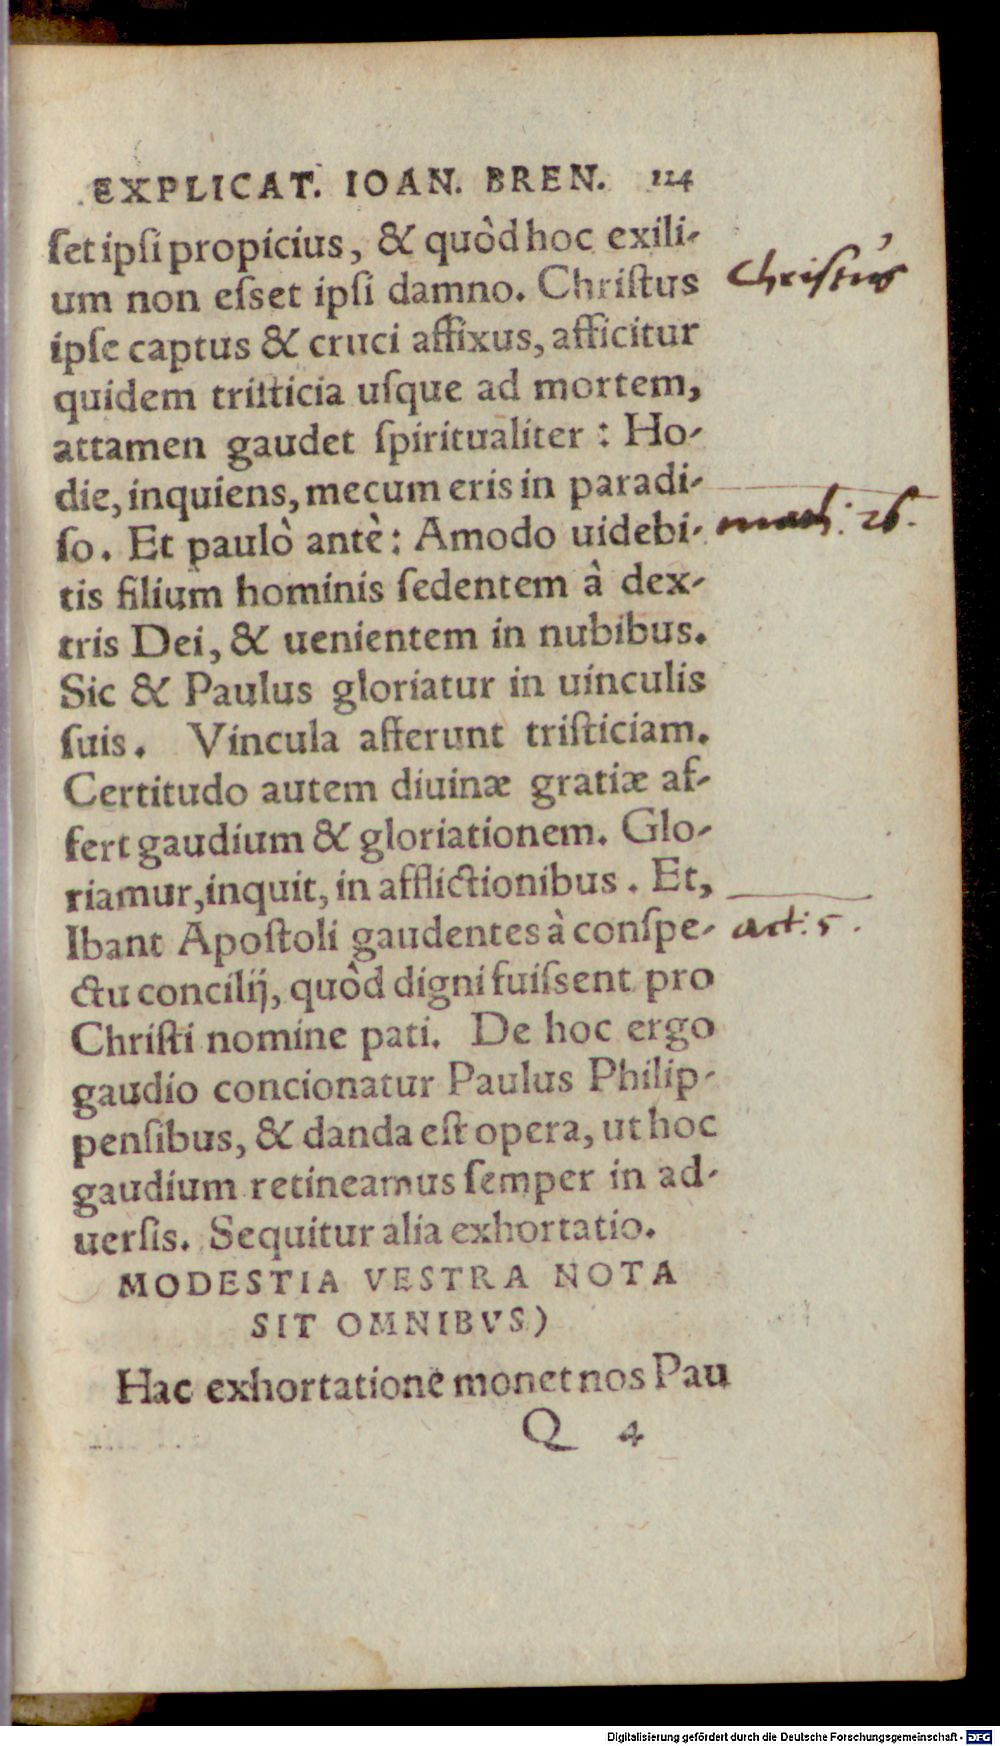 EXPLICAT. IOAN. BREN. 124
ſet ipſi propicius, & quòd hoc exili-
um non eſset ipſi damno. Chriſtus
Christus
ipſe captus & cruci affixus, afficitur
quidem triſticia uſque ad mortem,
attamen gaudet ſpiritualiter : Ho-
die, inquiens, mecum eris in paradi-
ſo. Et paulò antè: Amodo uidebi-
math: 26.
tis filium hominis ſedentem à dex-
tris Dei, & uenientem in nubibus.
Sic & Paulus gloriatur in uinculis
ſuis. Vincula afferunt triſticiam.
Certitudo autem diuinæ gratiæ af-
fert gaudium & gloriationem. Glo-
riamur, inquit, in afflictionibus. Et,
Ibant Apoſtoli gaudentes à conſpe-
act: 5.
ctu concilij, quòd digni fuiſsent pro
Chriſti nomine pati. De hoc ergo
gaudio concionatur Paulus Philip-
penſibus, & danda eſt opera, ut hoc
gaudium retineamus ſemper in ad-
uerſis. Sequitur alia exhortatio.
MODESTIA VESTRA NOTA
SIT OMNIBVS)
Hac exhortatione monet nos Pau
Q 4
Digitalisierung gefördert durch die Deutsche Forschungsgemeinschaft - DFG